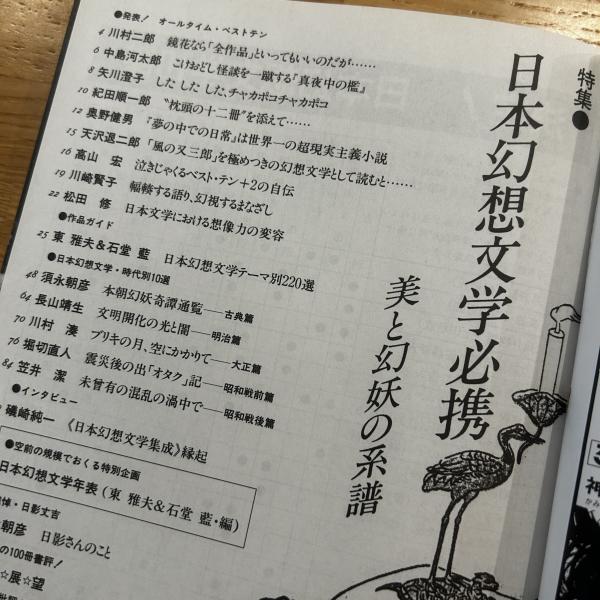 特集●
日本幻想文学必携
美と幻妖の系譜
●発表！ オールタイム・ベストテン
4 川村二郎 鏡花なら「全作品」といってもいいのだが……
6 中島河太郎 こけおどし怪談を一蹴する『真夜中の檻』
8 矢川澄子 した した した、チャカポコチャカポコ
10 紀田順一郎 〝枕頭の十二冊〟を添えて……
12 奥野健男 『夢の中での日常』は世界一の超現実主義小説
15 天沢退二郎 「風の又三郎」を極めつきの幻想文学として読むと……
16 高山 宏 泣きじゃくるベスト・テン+2の自伝
19 川崎賢子 輻輳する語り、幻視するまなざし
22 松田 修 日本文学における想像力の変容
●作品ガイド
25 東 雅夫&石堂 藍 日本幻想文学テーマ別220選
●日本幻想文学・時代別10選
48 須永朝彦 本朝幻妖奇譚通覧——古典篇
64 長山靖生 文明開化の光と闇——明治篇
70 川村 湊 ブリキの月、空にかかりて——大正篇
76 堀切直人 震災後の出「オタク」記——昭和戦前篇
84 笠井 潔 未曾有の混乱の渦中で——昭和戦後篇
●インタビュー
礒崎純一 《日本幻想文学集成》縁起
●空前の規模でおくる特別企画
日本幻想文学年表（東 雅夫&石堂 藍・編）
悼・日影丈吉
朝彦 日影さんのこと
の100冊書評！
☆展☆望
神